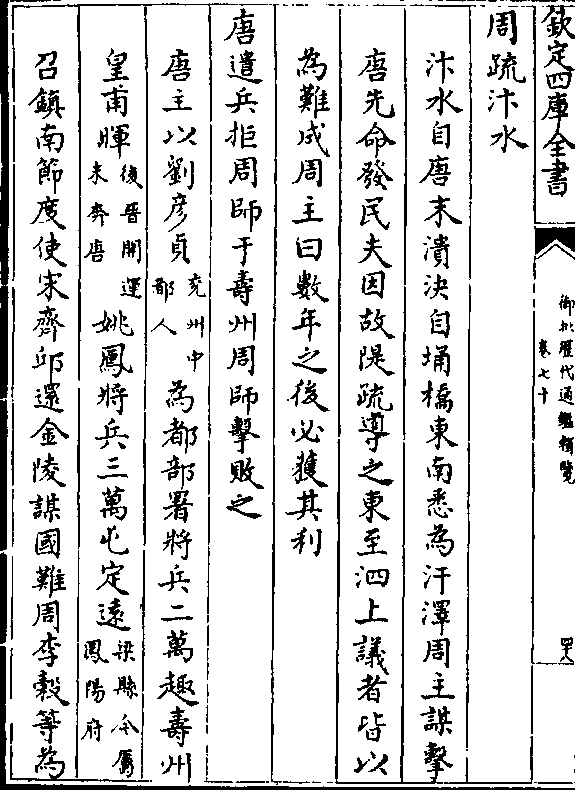 欽定四庫全書
御批歷代通鑑輯覽
卷七十
周疏汴水
汴水自唐末潰決自埇橋東南悉為汙澤周主謀擊
唐先命發民夫因故隄疏導之東至泗上議者皆以
為難成周主曰數年之後必獲其利
唐遣兵拒周師于壽州周師擊敗之
唐主以劉彥貞兖州中都人為都部署將兵二萬趣壽州
皇甫暉後晉開運末奔唐姚鳳將兵三萬屯定遠梁縣今屬鳳陽府
召鎮南節度使宋齊邱還金陵謀國難周李榖等為